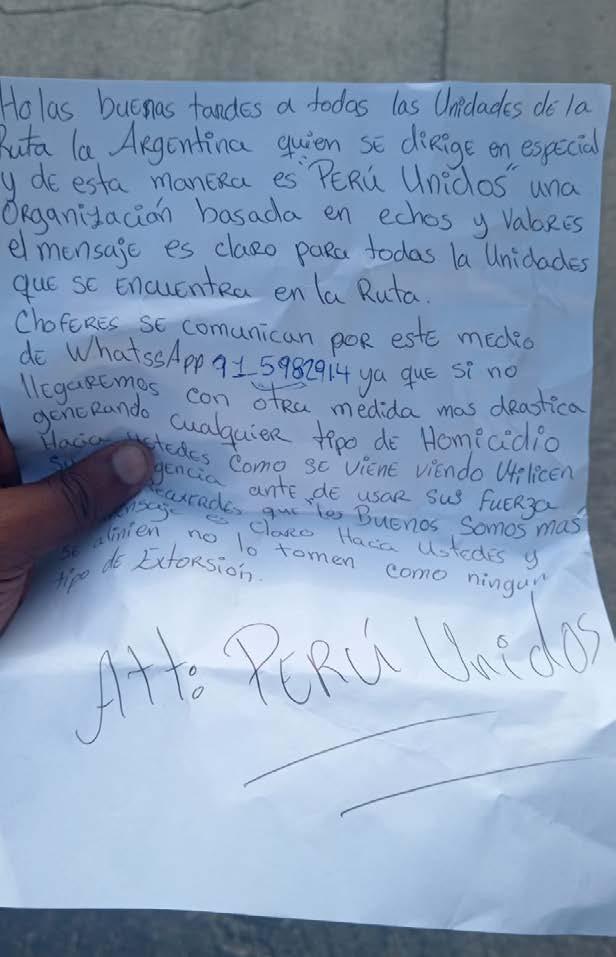 Holas buenas tardes a todas las Unidades de la
Ruta la Argentina quien se dirige en especial
y de esta manera es "PERÚ Unidos" una
Organización basada en echos y valores
el mensaje es claro para todas la Unidades
que se encuentra en la Ruta.
Choferes se comunican por este medio
de WhatssApp 91_5982914 ya que si no
llegaremos con otra medida mas drastica
generando cualquier tipo de Homicidio
Hacia ustedes como se viene viendo Utilicen
gencia ante de usar sus fuerza
que los Buenos Somos mas
es claro Hacia Ustedes y
se alinien no lo tomen como ningun
tipo de Extorsión.
Att: PERÚ Unidos